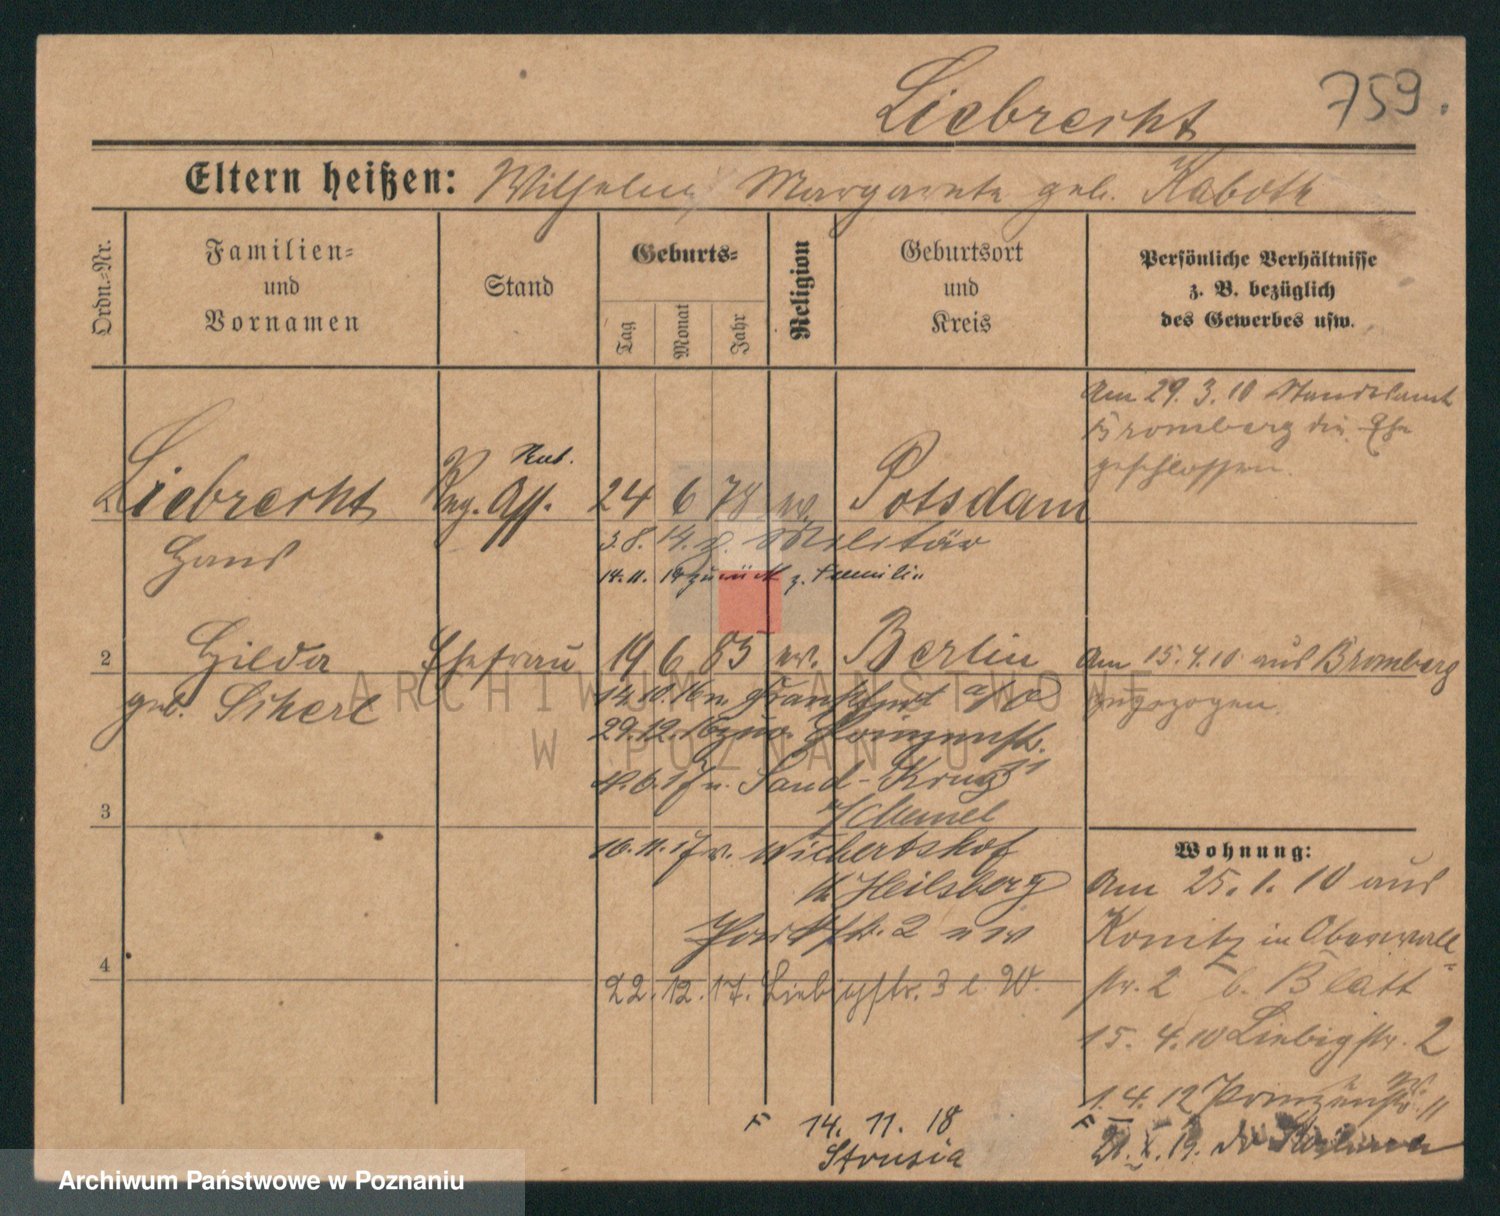 759.
Liebrecht
Eltern heißen: Wilhelm Margarete geb. Kaboth
Ordn.-Nr.
Familien-
und
Vornamen
Stand
Geburts-
Tag
Monat
Jahr
Religion
Geburtsort
und
Kreis
Persönliche Verhältnisse
z. B. bezüglich
des Gewerbes usw.
Am 29. 3. 10 Standesamt
Bromberg die Ehe
geschlossen.
1 Liebrecht Reg. Ass. 24 6 78 ev. Potsdam
Hans
3.8. 14. z. Militär
14.11. 18 zurück z. Familie
2 Hilda Ehefrau 19 6 85 ev. Berlin
geb. Sikert
Am 15.4.10 aus Bromberg
zugezogen.
14.10.16 n. Frankfurt a/O
29.12.16 zur. Prinzenstr.
n. Sand-Krug
b/Memel
3
10.11.17 v. Wichertshof
Heilsberg
2
4
22.12.17. Liebigstr. 3 b. W.
Wohnung:
Am 25.1.10 aus
Konitz in Oberwall-
str. 2 b. Blatt
15.4.10 Liebigstr. 2
1.4.12 Prinzenstr. 11
F 14. 11. 18
F
X. 19.
ARCHIWUM PAŃSTWOWE
W POZNANIU
Archiwum Państwowe w Poznaniu